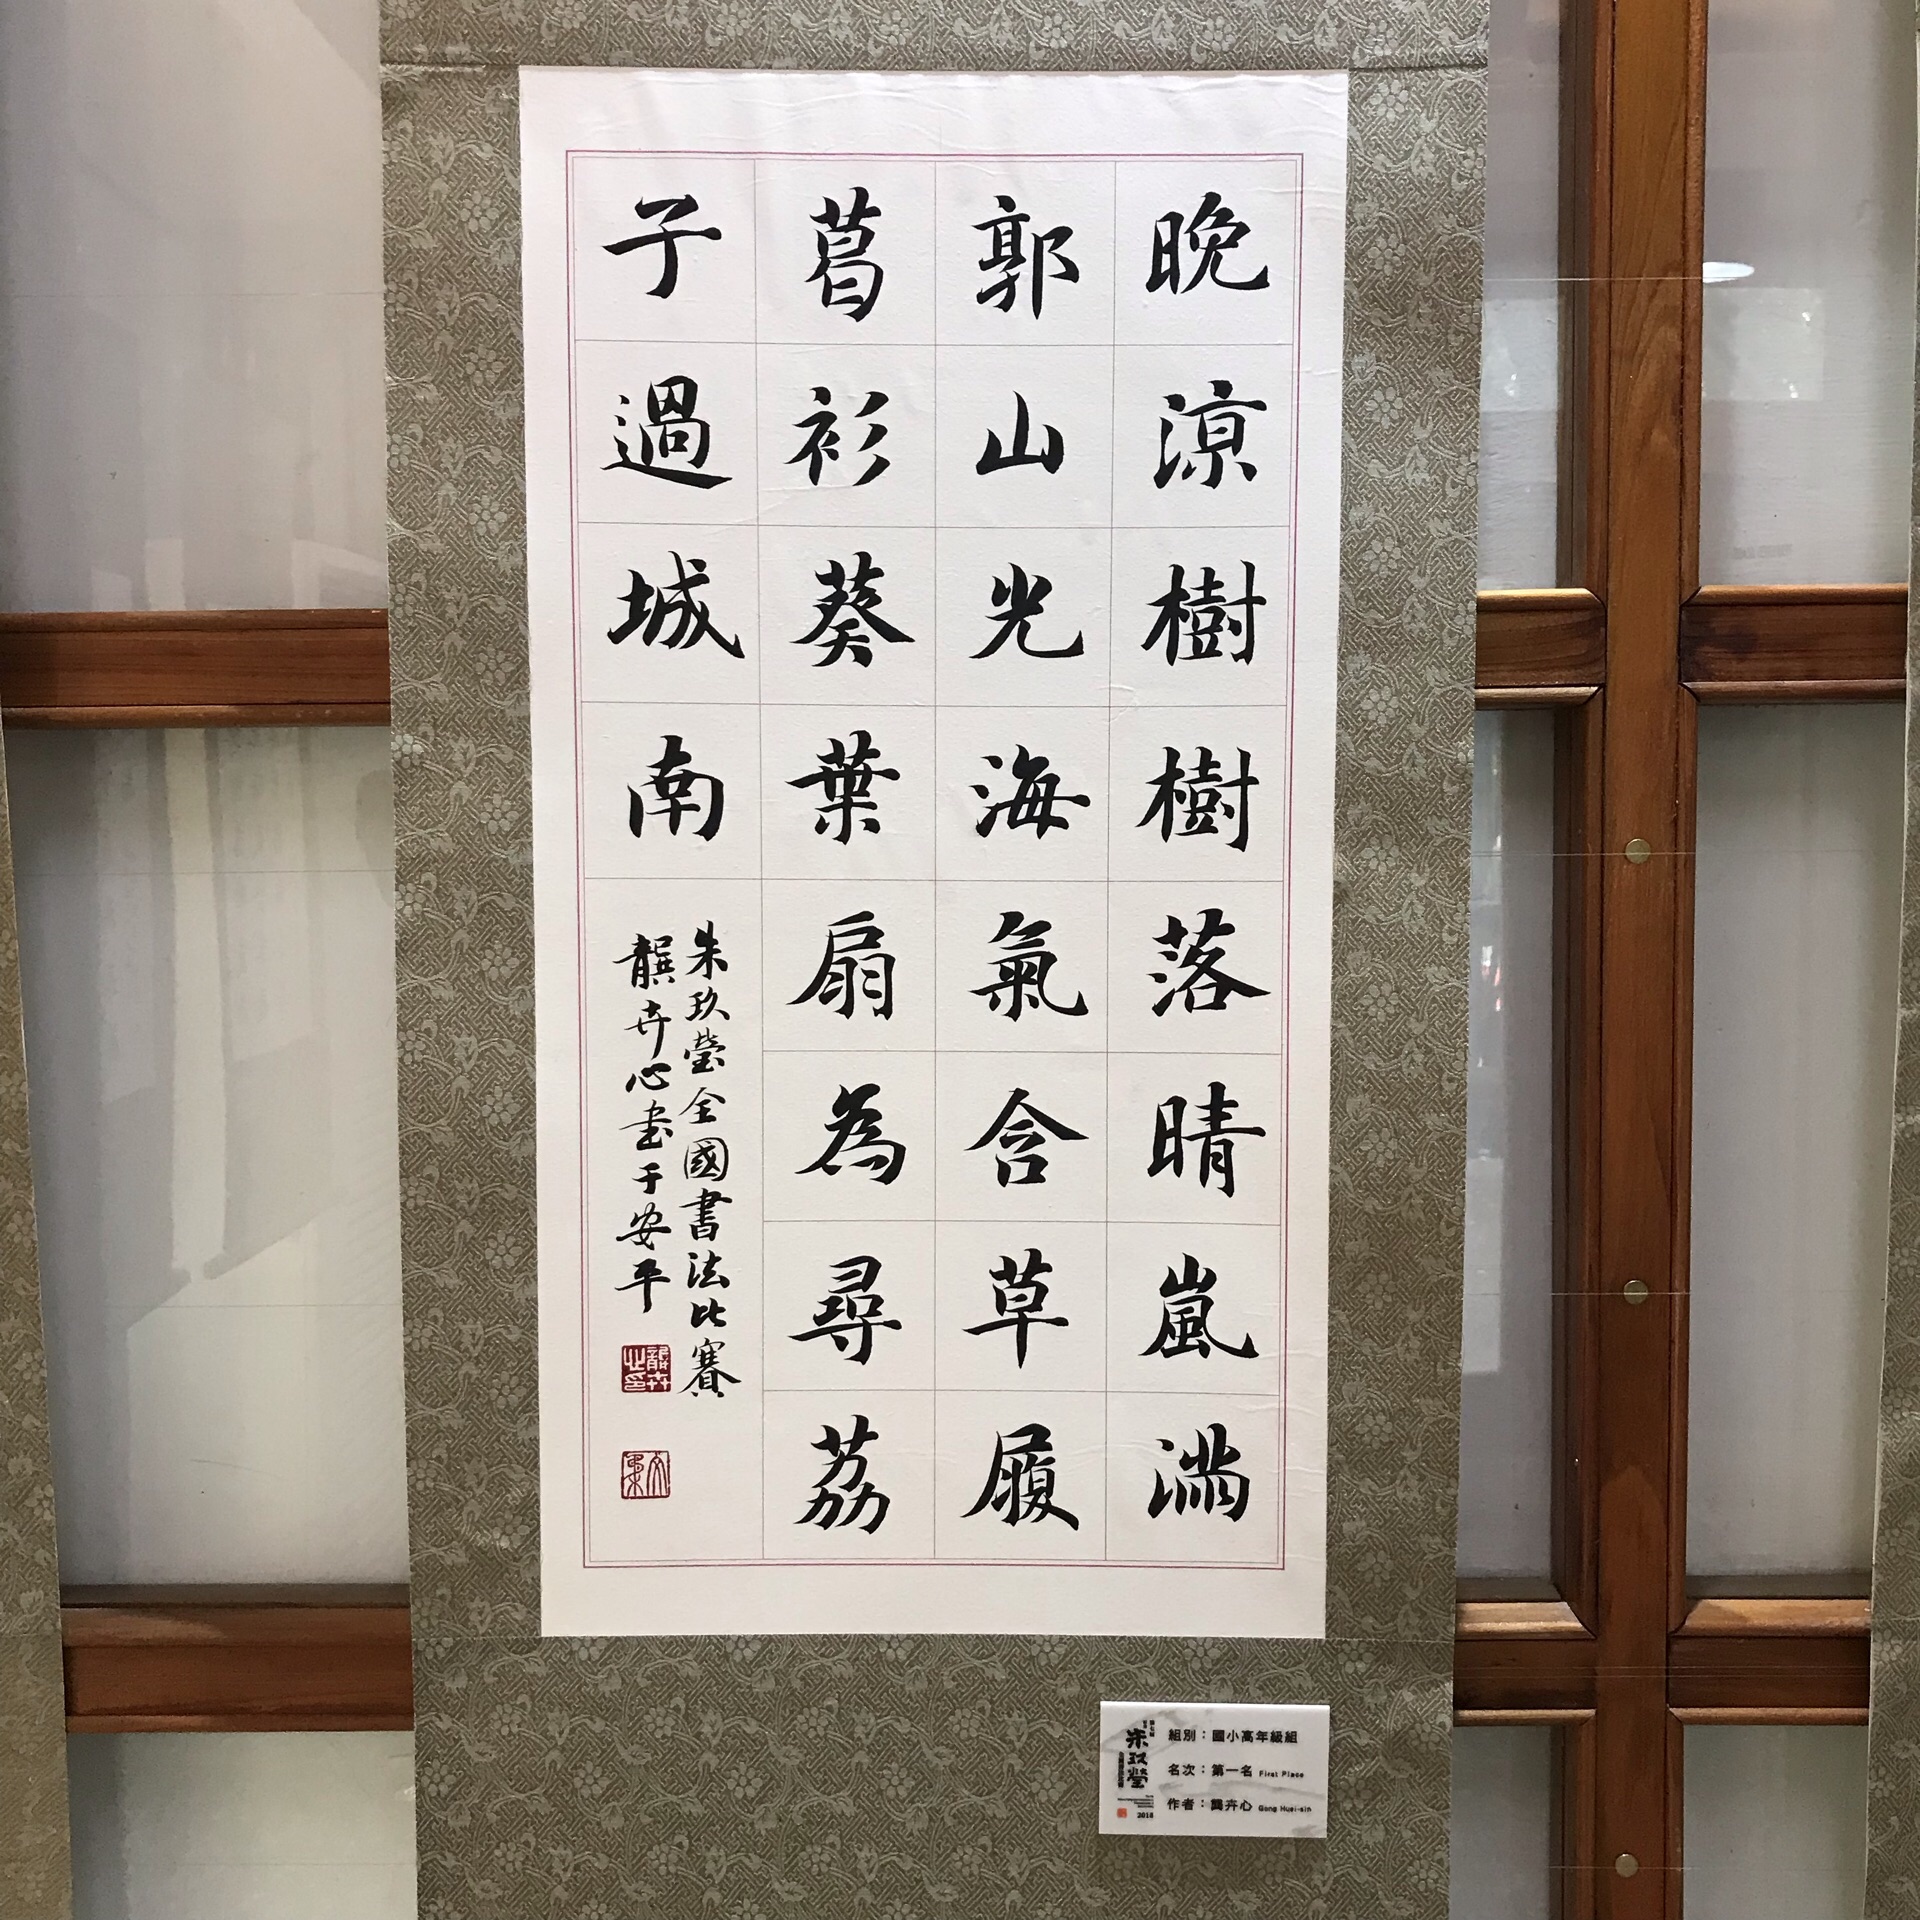 晚涼樹樹落晴嵐滿
郭山光海氣含草履
葛衫葵葉扇為尋荔
子過城南
朱玖瑩全國書法比賽
龔卉心書于安平
朱玖瑩
2018
組別：國小高年級組
名次：第一名 First Place
作者：龔卉心 Gong Huei-sin